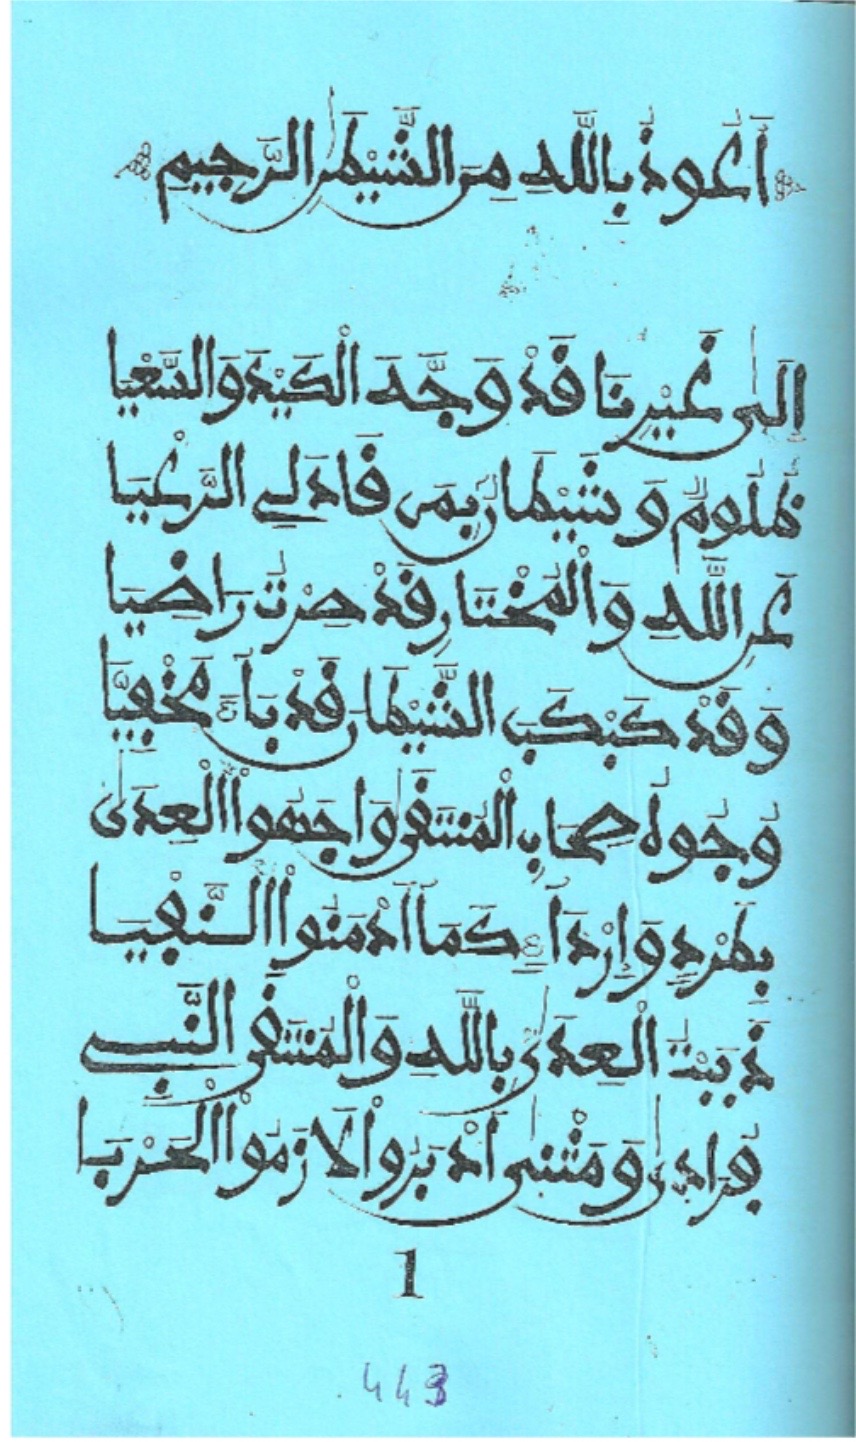 أَعُوذُ بِاللَّهِ مِنَ الشَّيْطَٰنِ الرَّجِيمِ
إِلَىٰ غَيْرِنَا قَدْ وَجَّهَ الْكَيْدَ وَالسَّعْيَا
ظَلُومٌ وَشَيْطَانٌ بِمَن قَادَ لِي الرَّعْيَا
عَنِ اللَّهِ وَالْمُخْتَارِ قَدْ صِرْتُ رَاضِيَا
وَقَدْ كَبْكَبَ الشَّيْطَانَ قَدْ بَآءَ مَخْفِيَّا
وُجُوهُ صِحَابِ الْمُنتَقَىٰ وَاجَهُواْ الْعِدَىٰ
بِطَرْدٍ وَإِرْدَآءٍ كَمَآ أَدْمَنُواْ النَّفْيَا
ذَبَبْتُ الْعِدَىٰ بِاللَّهِ وَالْمُنتَقَى النَّبِي
فُرَادَىٰ وَمَثْنَىٰ أَدْبَرُواْ لَازَمُواْ الْحَرْبَا
1
443